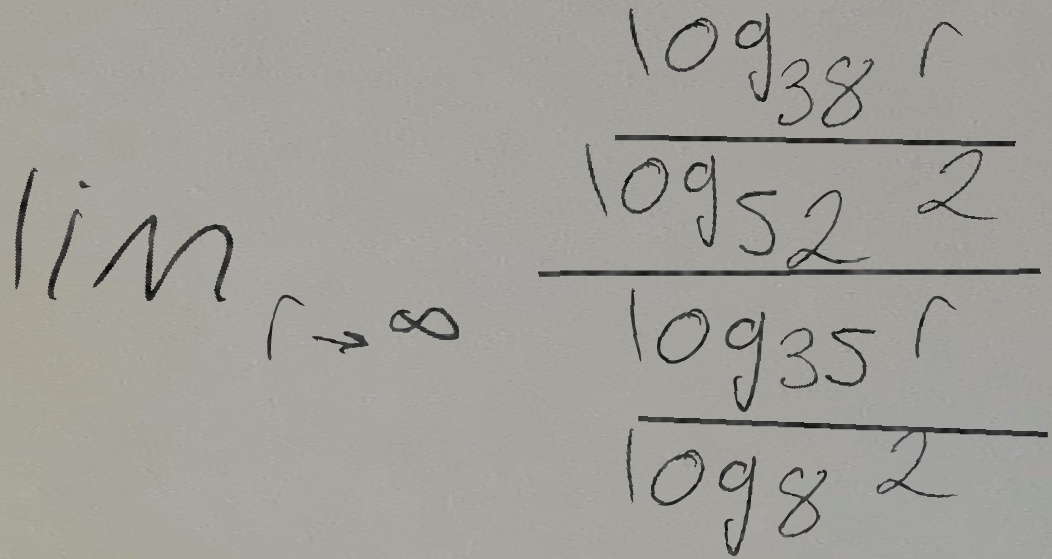 \lim_{r \to \infty} \frac{\frac{\log_{38} r}{\log_{52} 2}}{\frac{\log_{35} r}{\log_{8} 2}}